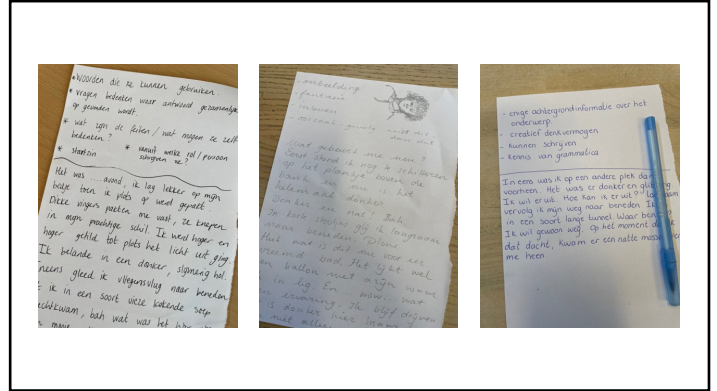 * Woorden die ze kunnen gebruiken.
* vragen bedenken waar antwoord gezamenlijk
op gevonden wordt.
* wat zijn de feiten / wat mogen ze zelf
bedenken?
* vanuit welke rol / persoon
schrijven ze?
* startzin
Het was ....avond, ik lag lekker op mijn
bedje toen ik plots op werd gepakt.
Dikke vingers pakten me vast, ze knepen
in mijn prachtige schil. Ik werd hoger en
hoger getild tot plots het licht uit ging.
Ik belande in een donker, slijmerig hol.
Ineens gleed ik vliegensvlug naar beneden
ik in een soort vieze kokende soep
echtkwam, bah wat was het
- verbeelding
- fantasie
- inleven
Wat gebeurt me nou?
Eerst stond ik nog te schitteren
op het plankje boven de
bank en nu is het
helemaal donker.
Donker en nat! Bah.
Ik kom glij langzaam
naar beneden. Plons
Het was is net me voor een
vreemd bad. Het lijkt wel
een ballon met
ik lig. En wauw wat
een ervaring. Ik blijf drijven
is donker hier maar
niet alleen
- enige achtergrondinformatie over het
onderwerp.
- creatief denkvermogen
- kunnen schrijven
- kennis van grammatica
In eens was ik op een andere plek dan
voorheen. Het was er donker en
Ik wil eruit. Hoe kan ik eruit?
vervolg ik mijn weg naar beneden. Ik
in een soort lange tunnel. Waar ben
Ik wil gewoon weg. Op het moment
dat dacht, kwam er een natte massa
me heen